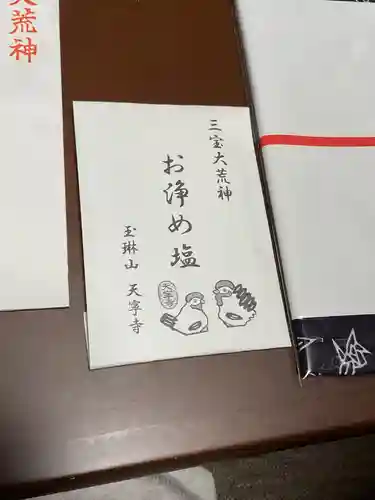 大荒神
三宝大荒神
お浄め塩
玉琳山 天寧寺
天寧寺